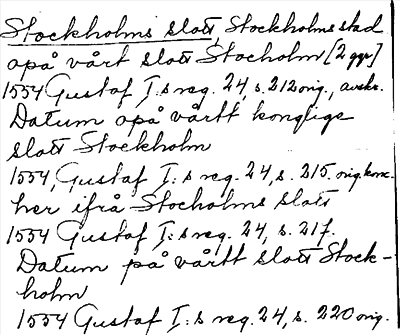 Stockholms slott, Stockholms stad
opå vårt slott Stocholm [2 ggr]
1554 Gustaf I:s reg. 24, s. 212 orig., avskr.
Datum opå vårtt konglige
slott Stockholm
1554, Gustaf I:s reg. 24, s. 215, orig. konc.
her ifrå Stocholms slott
1554 Gustaf I:s reg. 24, s. 217.
Datum på vårtt slott Stock-
holm
1554 Gustaf I:s reg. 24, s. 220 orig.